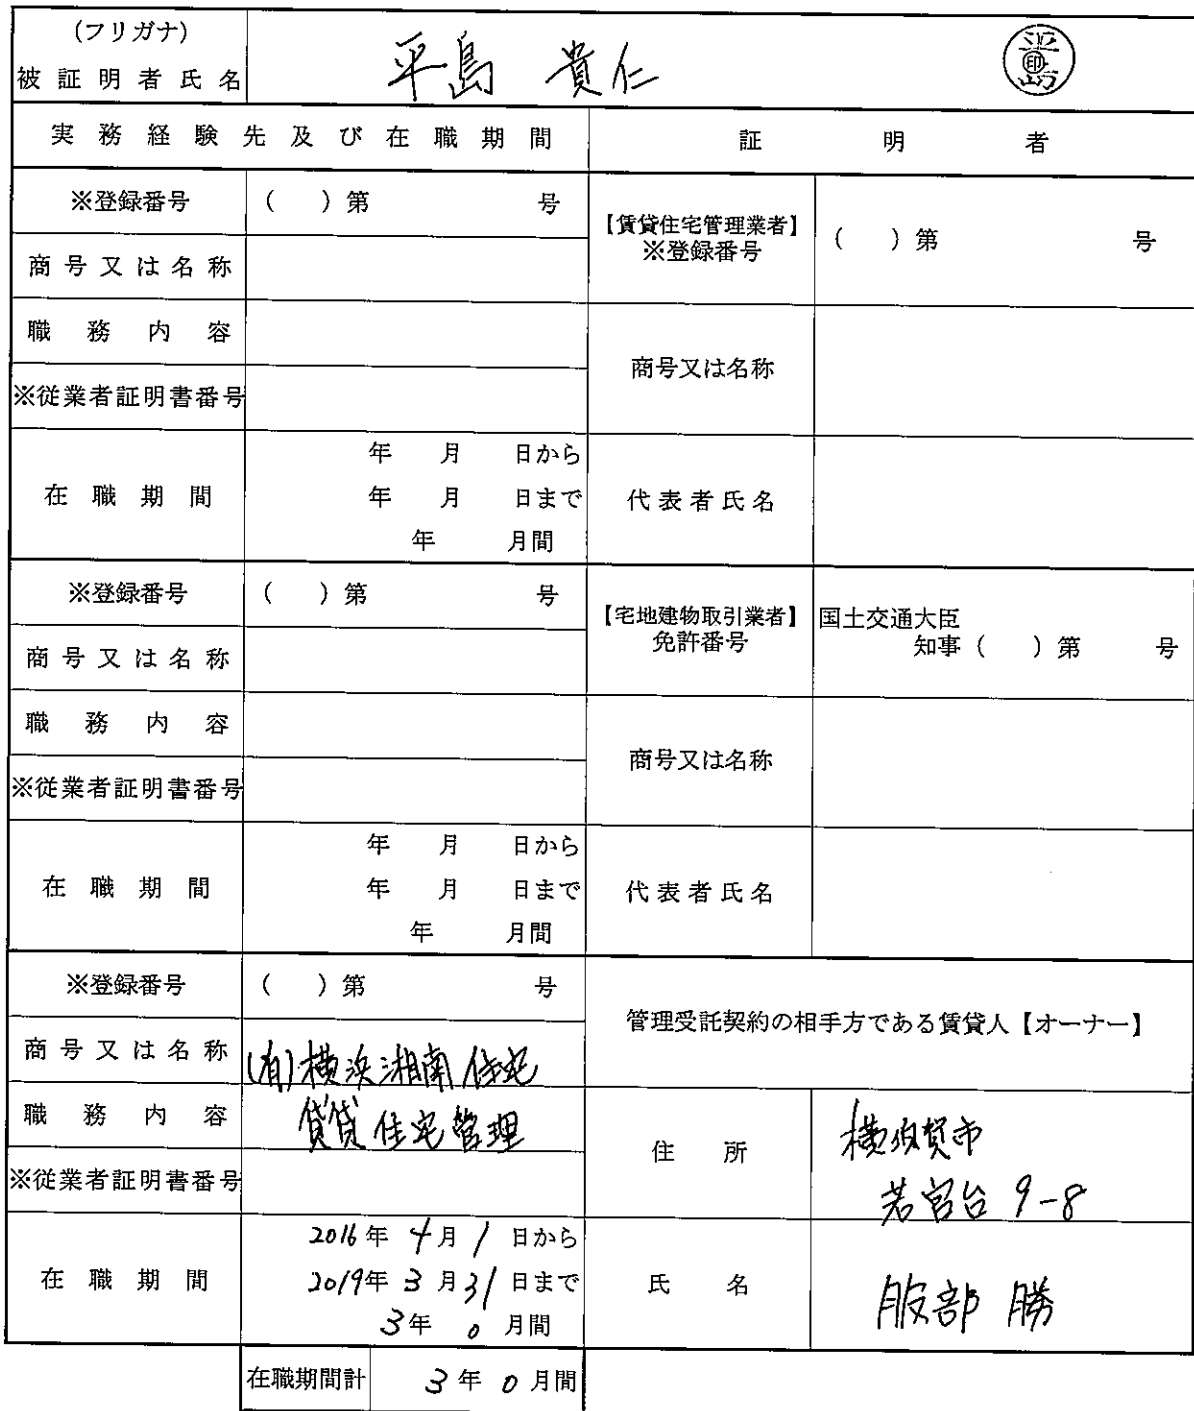 (フリガナ)
被証明者氏名 平島 貴仁 平島 印
実務経験先及び在職期間 証明者
※登録番号 ( )第 号 【賃貸住宅管理業者】 ※登録番号 ( )第 号
商号又は名称
職務内容 商号又は名称
※従業者証明書番号
年 月 日から
在職期間 年 月 日まで 代表者氏名
年 月間
※登録番号 ( )第 号 【宅地建物取引業者】 免許番号 国土交通大臣
知事( )第 号
商号又は名称
職務内容 商号又は名称
※従業者証明書番号
年 月 日から
在職期間 年 月 日まで 代表者氏名
年 月間
※登録番号 ( )第 号 管理受託契約の相手方である賃貸人【オーナー】
商号又は名称 (有)横浜湘南住宅
職務内容 賃貸住宅管理 住所 横須賀市
若宮台 9-8
※従業者証明書番号
2016年 4月 1日から
在職期間 2019年 3月 31日まで 氏名 服部 勝
3年 0月間
在職期間計 3年 0月間